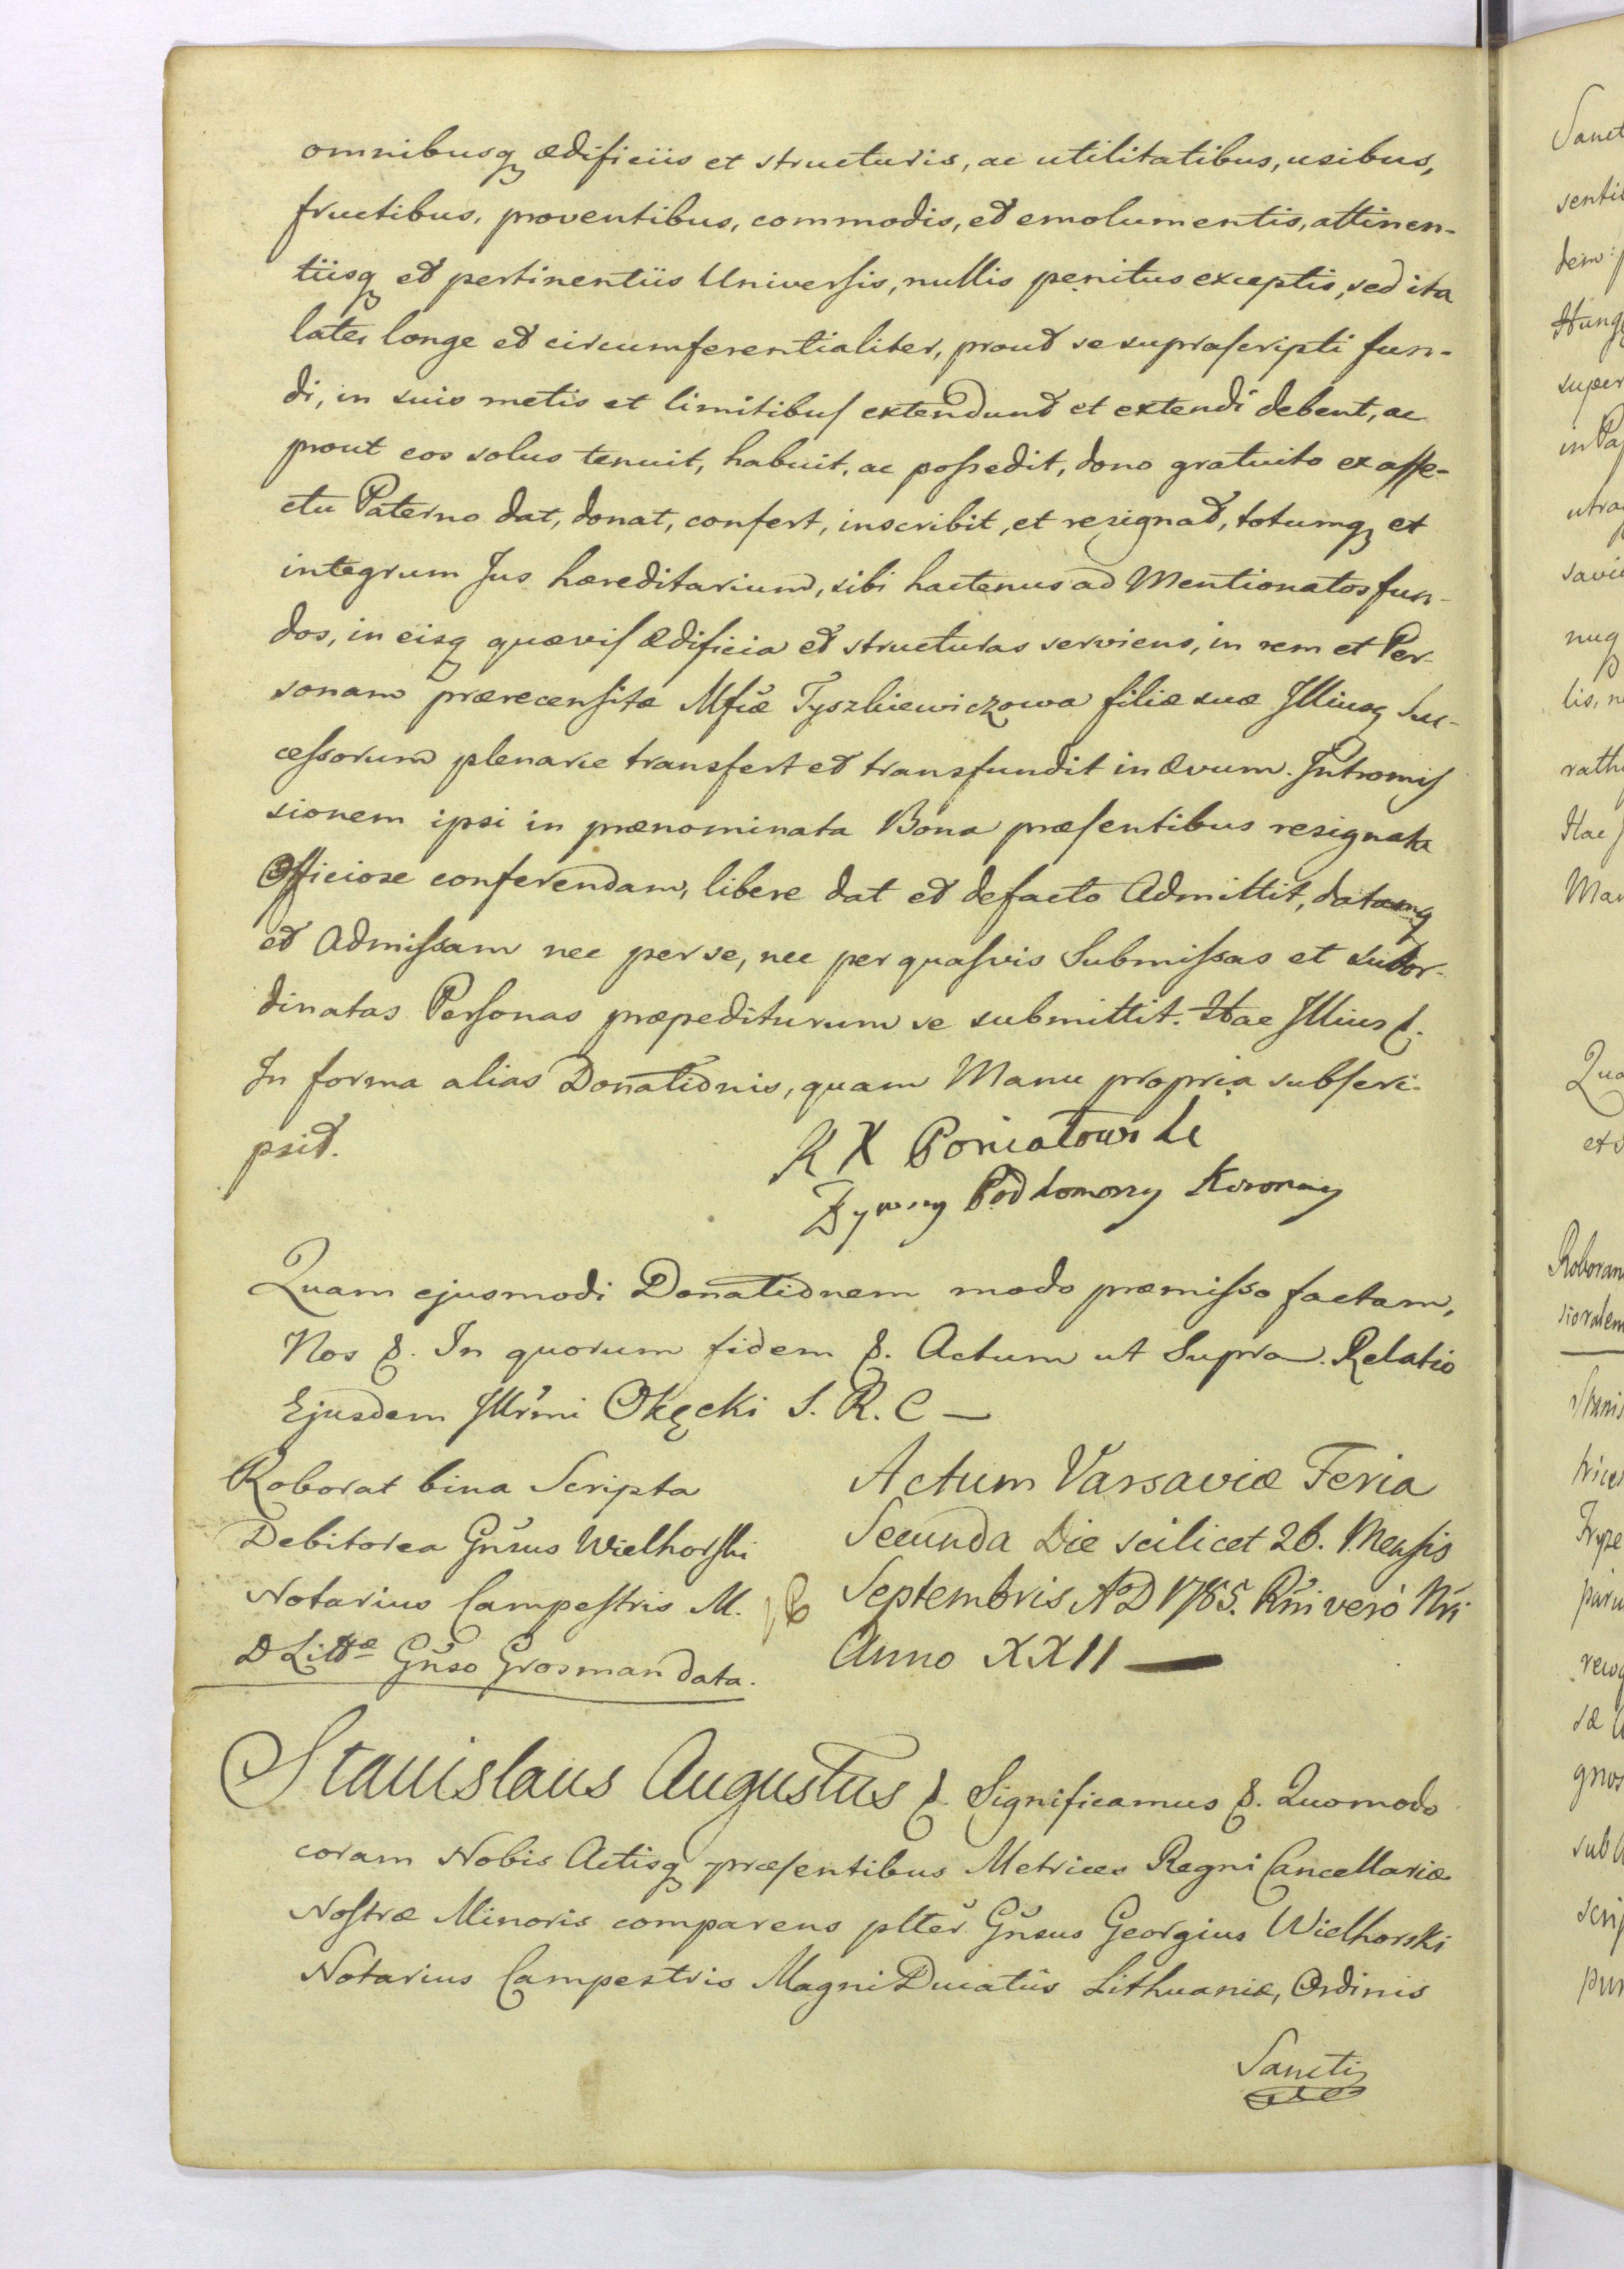 omnibusq ædificiis et structuris, ac utilitatibus, usibus,
fructibus, proventibus, commodis, et emolumentis, attinen-
tiisq et pertinentiis Universis, nullis penitus exceptis, sed ita
late, longe et circumferentialiter, prout se suprascripti fun-
di, in suis metis et limitibus extendunt et extendi debent, ac
prout eos solus tenuit, habuit, ac possedit, dono gratuito ex affe-
ctu Paterno dat, donat, confert, inscribit, et resignat, totumq et
integrum Jus hæreditarium, sibi hactenus ad Mentionatos fun-
dos, in eisq quævis Ædificia et structuras serviens, in rem et Per-
sonam prærecensitæ Mfcæ Tyszkiewiczowa filiæ suæ Illiusq Suc-
cessorum plenarie transfert et transfundit in Ævum. Intromis
sionem ipsi in prænominata Bona præsentibus resignata
Officiose conferendam, libere dat et defacto Admittit, datamq
et Admissam nec per se, nec per quasvis Submissas et subor-
dinatas Personas præpediturum se submittit. Hac Illius &.
In forma alias Donationis, quam Manu propria subscri-
psit.
K X Poniatowski
Bywszy Podkomorzy Koronny
Quam ejusmodi Donationem modo præmisso factam,
Nos &. In quorum fidem &. Actum ut Supra. Relatio
Ejusdem Illrmi Okęcki S. R. C —
Roborat bina Scripta
Debitorea Gnsus Wielhorski
Notarius Campestris M.
D Littæ Gnso Grosman data.
Actum Varsaviæ Feria
Secunda Die scilicet 26. Mensis
Septembris AoD 1785. Rni verò Nri
Anno XXII —
Stanislaus Augustus &. Significamus &. Quomodo
coram Nobis Actisq præsentibus Metrices Regni Cancellariæ
Nostræ Minoris comparens plter Gnsus Georgius Wielhorski
Notarius Campestris Magni Ducatûs Lithuaniæ, Ordinis
Sancti